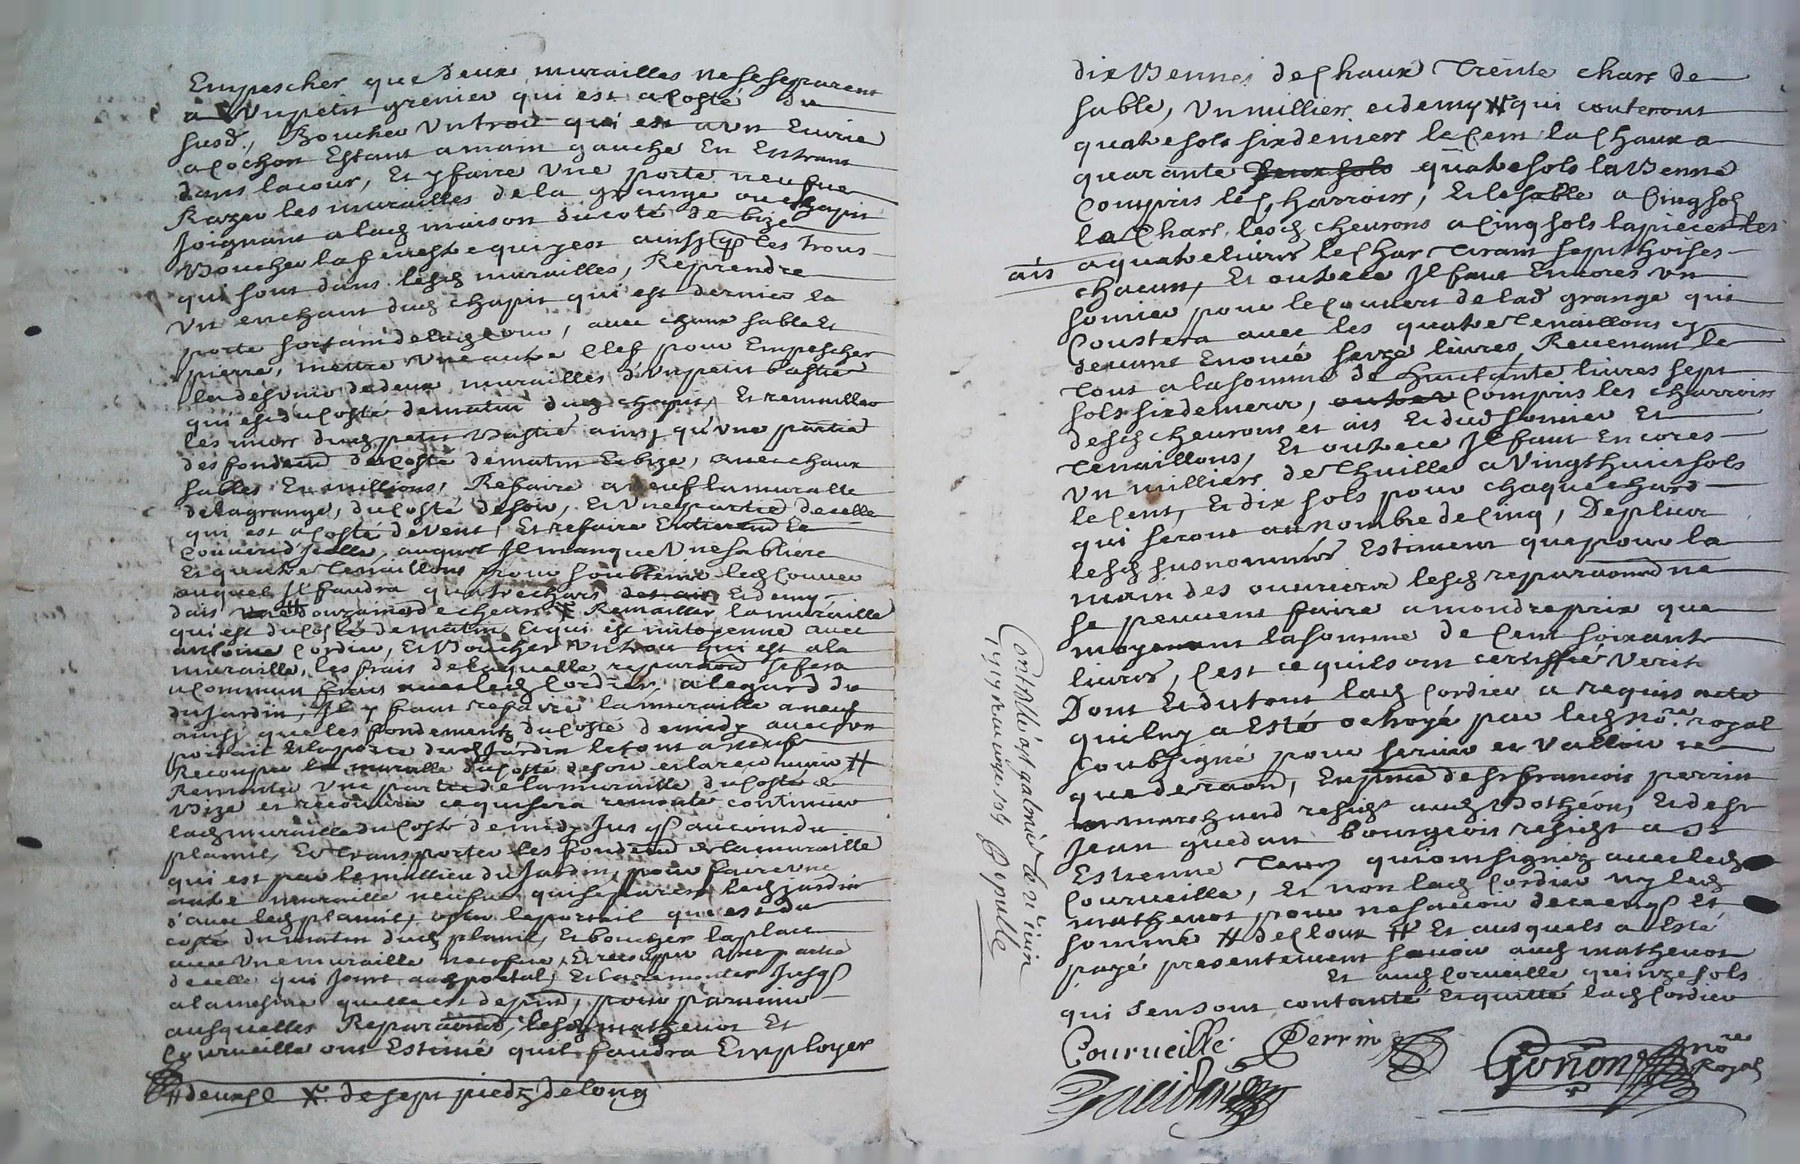 Empescher que deux murailles ne se separent
a Un petit grenier qui est a Costé du
susd., Boucher Un trou qui est a Un Ecurie
a Cochon Estant a main gauche En Entrant
dans la cour, Et y faire Une porte neufve
Razer les murailles de la grange ou chapit
Joignant a lad maison du coté de bize
Boucher la fenestre qui y est ainsy q les trous
qui sont dans lesd murailles, Reprendre
Un enchant dud chapit qui est dernier la
porte sortant de la cour, avec chaux sable Et
pierre, mettre Une autre Clef pour Empescher
la desunion de deux murailles d'Un petit bastie
qui est du Costé de matin dud chapit, Et remailler
les murs dud petit bastié ainsy qu'une partie
des fondem du Costé de matin Et bize, avec chaux
sables Et millions, Refaire a neuf la muralle
de la grange, du Costé de soir, Et Une partie d'icelle
qui est a Costé de vent, Et refaire Entierem le
Couvert d'icelle, auquel Il manque Une sabliere
Et quatre Tenaillons pour soubtenir led Couvert
auquel Il faudra quatre chars Et demy
dais douzaines de chevrons X Remailler la muraille
qui est du Costé de matin, Et qui est mitoyenne avec
antoine Cordier, Et Boucher Un trou qui est a la
muraille, les frais de laquelle reparaon se fera
a Commun frais avec led Cordier, a legard du
du Jardin, Il y faut refaire la muraille a neuf
ainsy que les fondements du Costé de midy avec son
portail Et la porte dud Jardin le tout a neuf
Recouper la muralle du Costé de soir
Remonter Une partie de la muraille du Costé de
Bize et recouvrir ce qui sera remonté continuer
lad muraille du Costé de midy Jusq au coin du
plamil, Et transporter les fondem de la muraille
qui est par le millieu du Jardin, pour faire une
autre muraille neufve qui separera led Jardin
d'avec led plamil, oster le portail qui est du
costé du matin dud plamil, Et boucher la place
avec Une muraille neufve, Et recouper Une partie
d'icelle qui Joint aud portail, Et la remonter Jusq
a la mesure quelle est de pnt, pour parvenir
ausquelles Reparaons, lesd mathevot Et
Courveille ont Estimé quil faudra Employer
# deux X de sept piedz de long
dix Bennes de Chaux Trente chars de
sable, Un millier et demy # qui couteront
quatre sols six deniers le Cent la Chaux a
quarante quatre sols la Benne
Compris les Charrois, Et le sable a Cinq sols
le Char, lesd chevrons a Cinq sols la piece Et les
ais a quatre livres le Char Tirant sept thoises
chacun, Et outre ce Il faut Encores Un
somier pour le Couvert de lad grange qui
Coustera avec les quatre Tenaillons cy
devant Enoncé seize livres, Revenant le
Tout a la somme de huictante livres sept
sols six deniers, Compris les charrois
desd chevrons et ais Et dud somier Et
Tenaillons, Et outre ce Il faut Encores
Un millier de Thuille a Vingt huict sols
le Cent, Et dix sols pour chaque chard
qui seront au nombre de Cinq, De plus
lesd susnommés Estiment que pour la
main des ouvriers lesd reparaons ne
se peuvent faire a moindre prix que
moyenant la somme de Cent soixante
livres, C'est ce quils ont certiffié Verit
Dont Et du tout lad Cordier a requis acte
qui luy a Esté octroyé par led No.re royal
soubsigné pour servir et valloir ce
que de raon, En pnce de sr francois perrin
marchand resid aud Bothéon, Et de sr
Jean guedan bourgeois resid a St
Estienne qui ont signez avec led
Courveille, Et non lad Cordier ny led
mathevot pour ne scavoir de ce enq Et
sommé # de Cloux # Et ausquels a Esté
payé presentement scavoir aud mathevot
Et aud Corveille quinze sols
qui s'en sont contanté Et quitté lad Cordier
Courveille Perrin
Gonon no.re Royal
Contrôllé a St galmier le 21 Juin